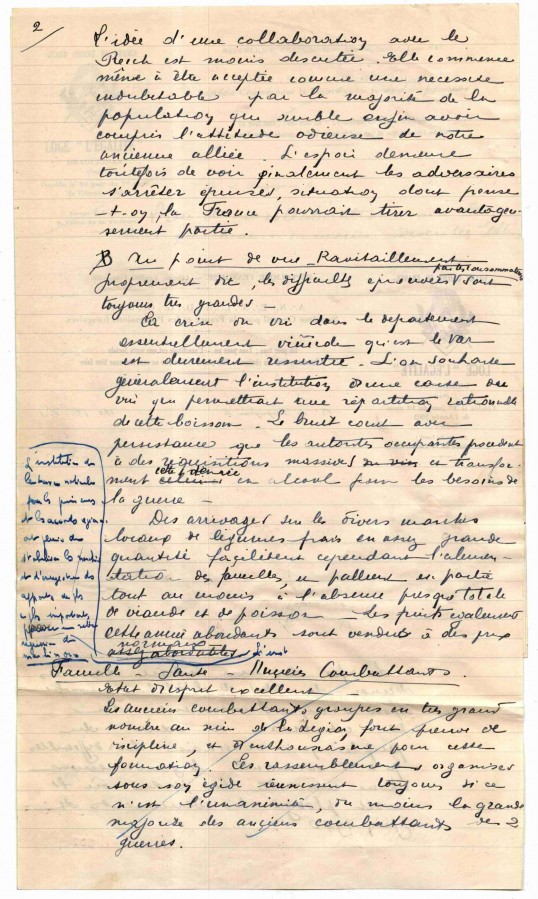 2/
L'idée d'une collaboration avec le
Reich est moins discutée. Elle commence
même à être acceptée comme une necessité
indubitable par la majorité de la
population qui semble enfin avoir
compris l'attitude odieuse de notre
ancienne alliée. L'espoir demeure
toutefois de voir finalement les adversaires
s'arrêter épuisés, situation dont pense
-t-on, la France pourrait tirer avantageu-
sement partie.
B Au point de vue Ravitaillement
proprement dit, les difficultés éprouvées par les consommateurs sont
toujours très grandes -
La crise du vin dans le département
essentiellement vinicole qu'est le Var
est durement ressentie. L'on souhaite
généralement l'institution d'une carte du
vin qui permettrait une répartition rationnelle
de cette boisson. Le bruit court avec
persistance que les autorités occupantes procèdent
à des requisitions massives du vin et transfor-
ment cette denrée en alcool pour les besoins de
la guerre -
Des arrivages sur les divers marchés
locaux de légumes frais en assez grande
quantité facilitent cependant l'alimen-
tation des familles, et pallient en partie
tout au moins à l'absence presque totale
de viande et de poisson - Les fruits également
cette année abondants sont vendus à des prix
normaux
assez abordables
L'institution de
pour les
et les
ont permis de
et d'
apports de
Famille - Santé - Anciens Combattants.
Etat d'esprit excellent
Les anciens combattants groupés en très grand
nombre au sein de la Légion font preuve de
discipline, et d'enthousiasme pour cette
formation. Les rassemblements organisés
sous son égide réunissent toujours si ce
n'est l'unanimité, du moins la grande
majorité des anciens combattants des 2
guerres.